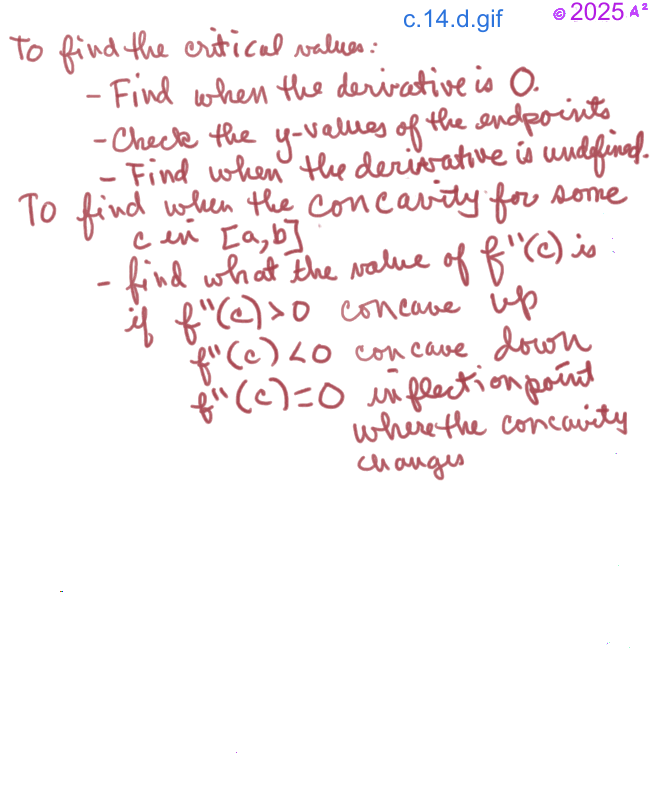 c.14.d.gif © 2025 A²
To find the critical values:
- Find when the derivative is 0.
- Check the y-values of the endpoints
- Find when the derivative is undefined.
To find when the concavity for some
c in [a,b]
- find what the value of f"(c) is
if f"(c)>0 concave up
f"(c)<0 concave down
f"(c)=0 inflection point
where the concavity
changes